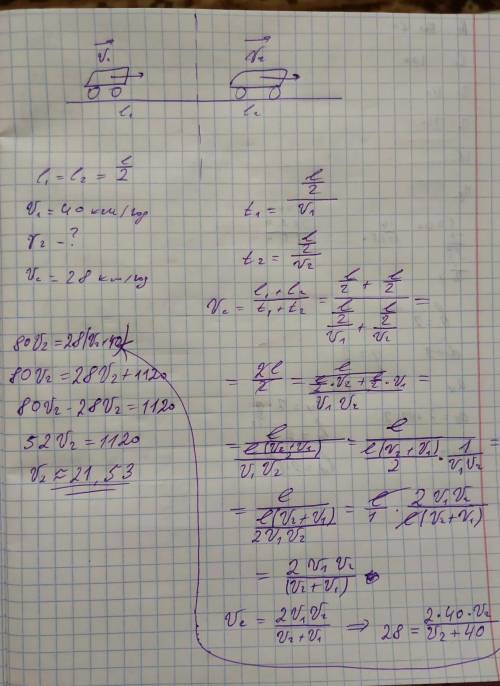 V₁ V₂
l₁ l₂
l₁ = l₂ = l/2
V₁ = 40 км/год
V₂ - ?
Vc = 28 км/год
t₁ = (l/2)/V₁
t₂ = (l/2)/V₂
Vc = (l₁ + l₂)/(t₁ + t₂) = (l/2 + l/2)/((l/2)/V₁ + (l/2)/V₂) =
= (2l/2)/((l/2·V₂ + l/2·V₁)/(V₁V₂)) =
= l/((l(V₂+V₁)/2)/(V₁V₂)) = l/(l(V₂+V₁)/2 · 1/(V₁V₂)) =
= l/(l(V₂+V₁)/(2V₁V₂)) = l/1 · 2V₁V₂/(l(V₂+V₁))
= 2V₁V₂/(V₂+V₁)
Vc = 2V₁V₂/(V₂+V₁) ⇒ 28 = 2·40·V₂/(V₂+40)
80V₂ = 28(V₂+40)
80V₂ = 28V₂ + 1120
80V₂ - 28V₂ = 1120
52V₂ = 1120
V₂ ≈ 21,53